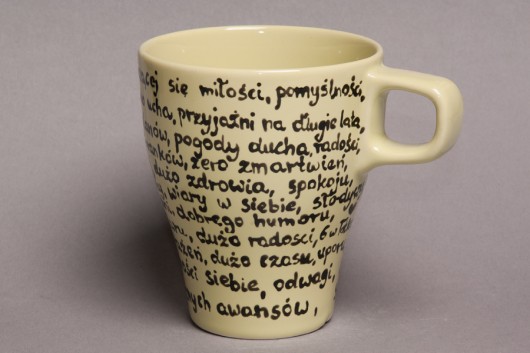 się miłości, pomyślności,
ucha, przyjaźni na długie lata,
pogody ducha, radości,
zero zmartwień,
dużo zdrowia, spokoju,
wiary w siebie,
dobrego humoru,
dużo radości, 6 w
dużo czasu,
siebie, odwagi,
awansów,